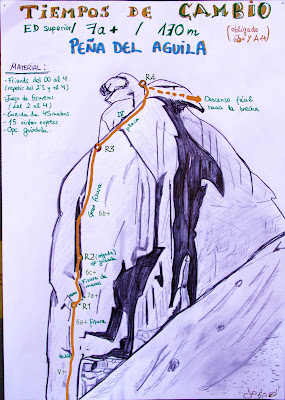 TIEMPOS DE CAMBIO
ED superior / 7a+ / 170 m
(obligado
6b+ y A1)
PEÑA DEL AGUILA
MATERIAL:
- Friends del 00 al 4.
(repetir del 2's y al 4)
- Juego de fisureros.
(del 2 al 4)
- Cuerda de 45 metros.
- 15 cintas express.
- Opc. guindola.
R4
Descenso fácil
hacia la brecha
IV
placa
R3
Gran Fisura
6b+
R2 (colgada)
6c+
Fisura de
manos
7a+
R1
6a+ Fisura
V+